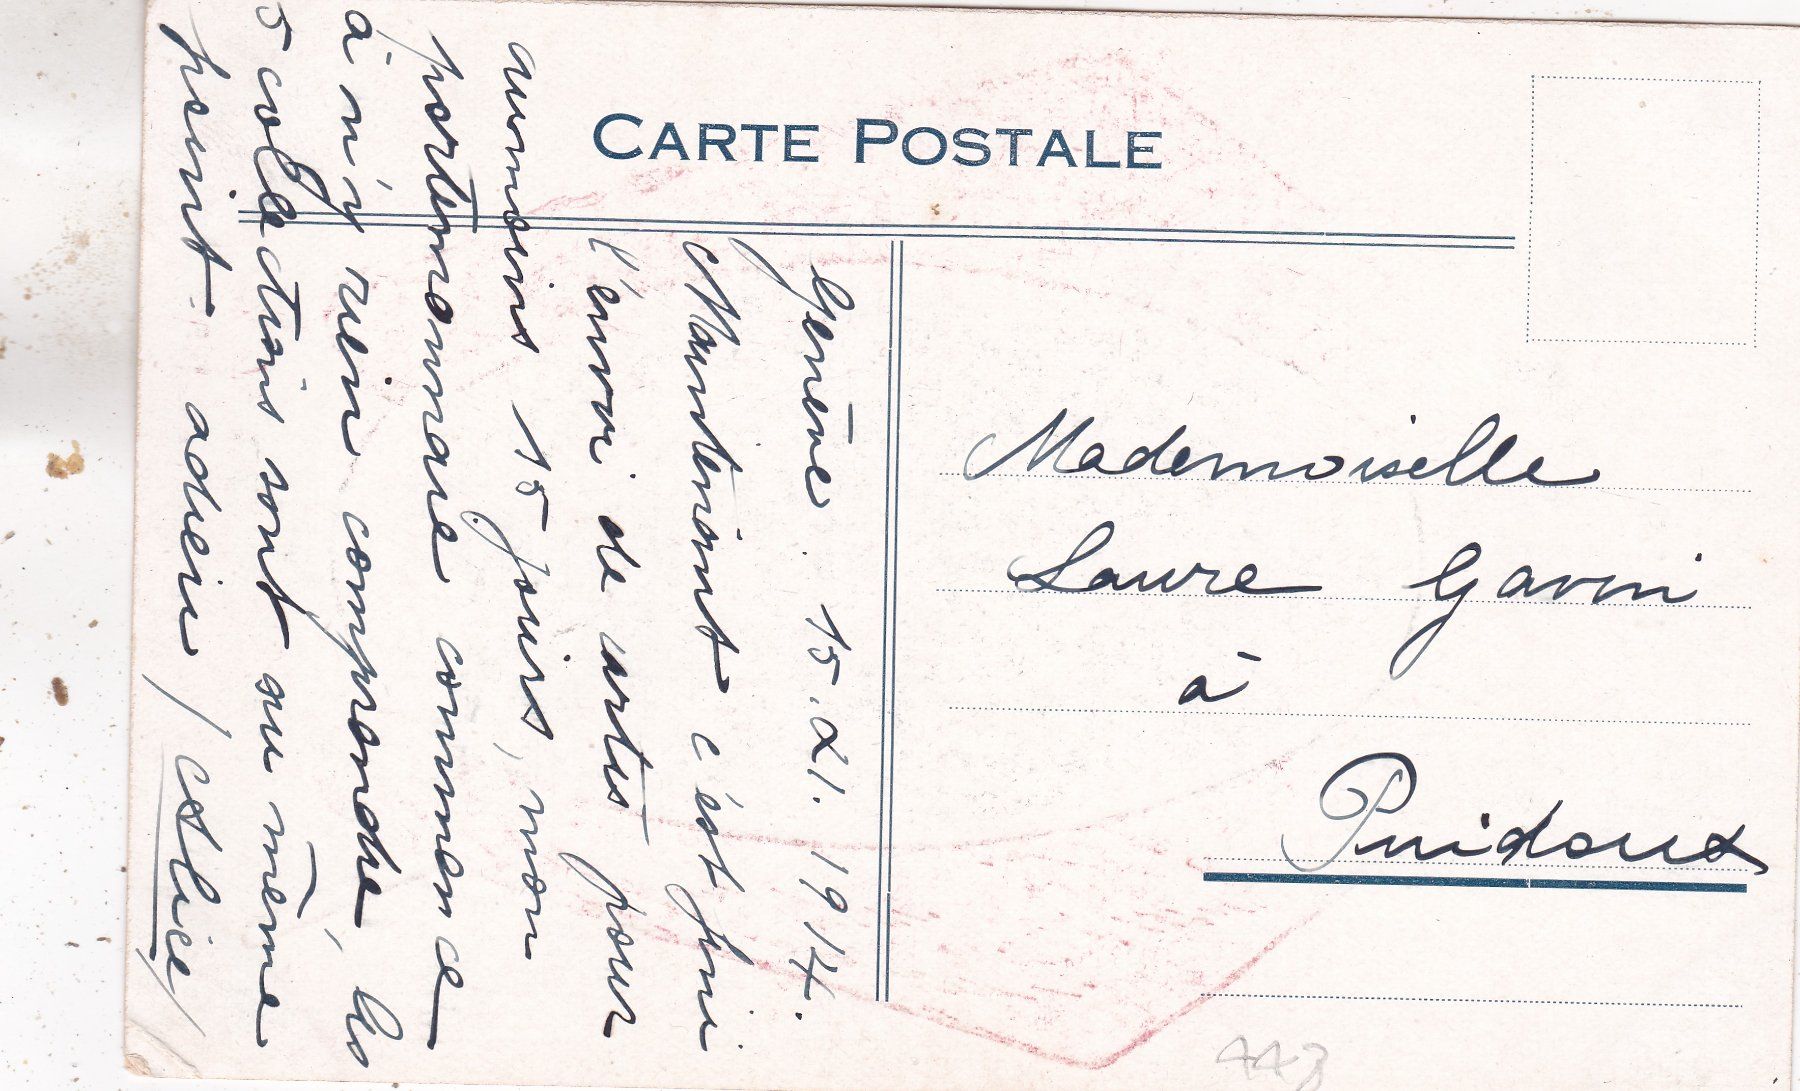 CARTE POSTALE
Genève. 15. XI. 1914.
Maintenant c'est fini
l'envoi de cartes pour
aumoins 15 jours, mon
portemonnaie commence
à n'y rien comprendre, les
5 collections sont au même
point. adieu /
Mademoiselle
Laure Gavin
à
Puidoux
443